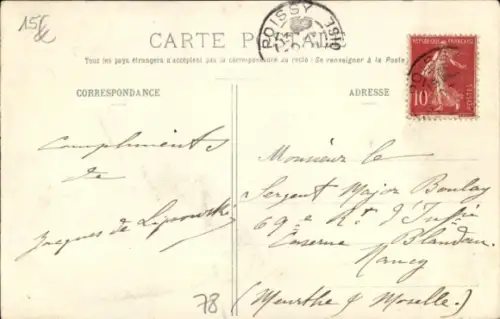 15
POISSY
OISE
CARTE POSTALE
Tous les pays étrangers n'acceptent pas la correspondance au recto (Se renseigner à la Poste)
CORRESPONDANCE
ADRESSE
REPUBLIQUE FRANÇAISE
10
POSTES
Compliments
de
Jacques de Lipowski
Monsieur le
Sergent Major Boulay
69e Rt d'Infie
Caserne Blandan
Nancy
(Meurthe & Moselle)
78